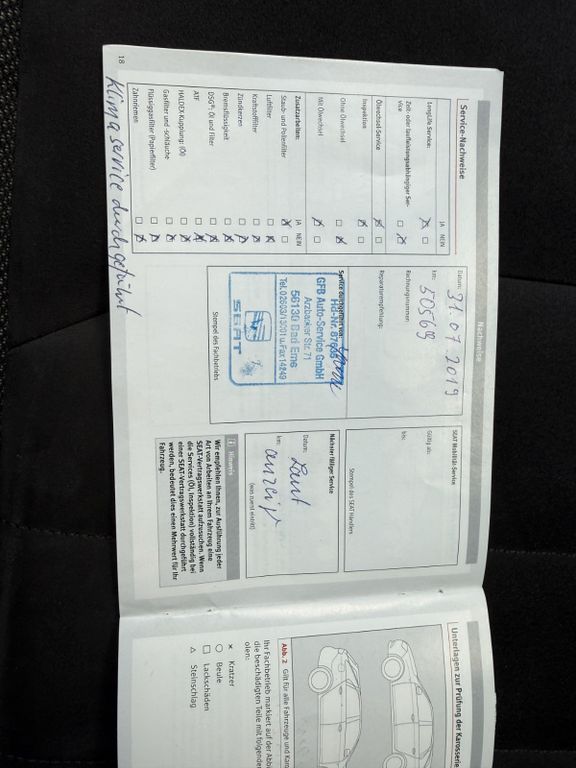 Nachweise
Service-Nachweise
JA NEIN
LongLife Service:
Zeit- oder laufleistungsabhängiger Ser-
vice
Ölwechsel-Service
Inspektion
Ohne Ölwechsel
Mit Ölwechsel
Zusatzarbeiten:
JA NEIN
Staub- und Pollenfilter
Luftfilter
Kraftstofffilter
Zündkerzen
Bremsflüssigkeit
DSG®: Öl und Filter
ATF
HALDEX-Kupplung: (Öl)
Gasfilter und -schläuche
Flüssiggasfilter (Papierfilter)
Zahnriemen
Klimaservice durchgeführt
18
Datum: 31.07.2019
km: 50569
Rechnungsnummer:
Reparaturempfehlung:
Service durchgeführt von:
GFB Auto-Service GmbH
Arzbacher Str. 71
56130 Bad Ems
Tel. 02603/13001 u. Fax 14249
SEAT
Stempel des Fachbetriebs
SEAT Mobilitäts-Service
Gültig ab:
bis:
Stempel des SEAT Händlers
Nächster fälliger Service
Datum: Laut
km: anzeige
(was zuerst eintritt)
Hinweis
Wir empfehlen Ihnen, zur Ausführung jeder
Art von Arbeiten an Ihrem Fahrzeug eine
SEAT-Vertragswerkstatt aufzusuchen. Wenn
die Services (Öl, Inspektion) vollständig bei
einer SEAT-Vertragswerkstatt durchgeführt
werden, bedeutet dies einen Mehrwert für Ihr
Fahrzeug.
Unterlagen zur Prüfung der Karosserie
Abb. 2 Gilt für alle Fahrzeuge und Karo
Ihr Fachbetrieb markiert auf der Abbi
die beschädigten Teile mit folgenden
olen:
× Kratzer
○ Beule
□ Lackschäden
△ Steinschlag